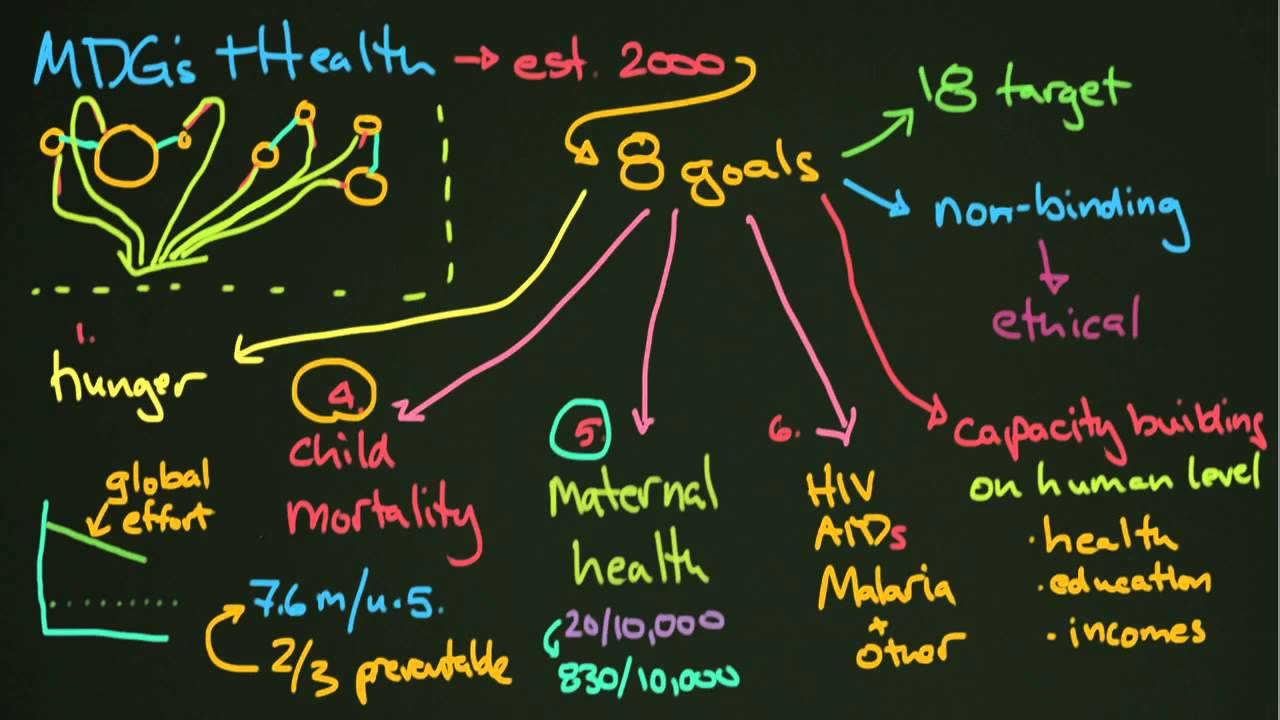 MDG's + Health → est. 2000
8 goals
18 target
non-binding
ethical
1.
hunger
global
effort
4.
child
mortality
7.6 m/u.5.
2/3 preventable
5.
Maternal
health
20/10,000
830/10,000
6.
HIV
AIDs
Malaria
+
other
capacity building
on human level
· health
· education
· incomes